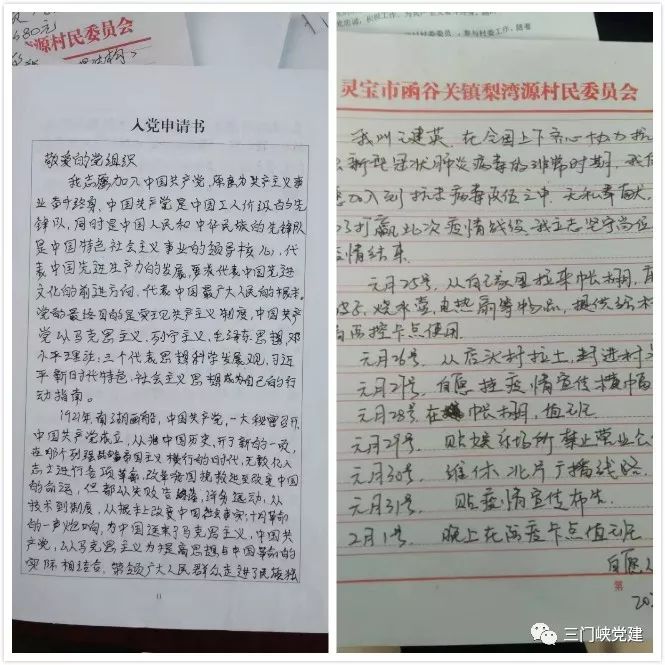 680元
源村民委员会
入党申请书
敬爱的党组织
我志愿加入中国共产党,愿意为共产主义事
业奋斗终身,中国共产党是中国工人阶级的先
锋队,同时是中国人民和中华民族的先锋队
是中国特色社会主义事业的领导核心,代
表中国先进生产力的发展,要求代表中国先进
文化的前进方向,代表中国最广大人民的根本。
党的最终目的是实现共产主义制度,中国共产
党以马克思主义,列宁主义,毛泽东思想,邓
小平理论,三个代表思想科学发展观,习近
平新时代特色,社会主义思想成为自己的行
动指南。
1921年,南湖画船,中国共产党,一大秘密召开,
中国共产党成立,从此中国历史,开了新的一致,
在那个列强帝国主义横行的时代,无数仁人
志士进行各项革命,改革
的命运,但都从失败告,洋务运动,从
技术到制度,从根本上改变中国,十月革命
的一声炮响,为中国送来了马克思主义,中国共
产党,以马克思主义为提高思想与中国革命的
实际相结合,带领广大人民群众走进了民族独
11
,参与村委工作,随着
灵宝市函谷关镇梨湾源村民委员会
我叫王建英,在全国上下齐心协力抗
新型冠状肺炎病毒的非常时期,我
加入到抗击病毒队伍之中,无私奉献,
了打赢此次疫情战役,我立志坚守岗位
疫情结束.
元月25号,从自己家里拉车帐棚,
烧水壶,电热扇等物品,提供给本
防控卡点使用.
元月26号.从店头村拉土,封进村
元月27号,自愿挂疫情宣传横幅
元月28号在帐棚,值班
元月29号.贴娱乐场所禁止营业
元月30号.维修北片广播线路.
元月31号.贴疫情宣传布告.
2月1号.晚上在防疫卡点值班
自愿
第
20
三门峡党建